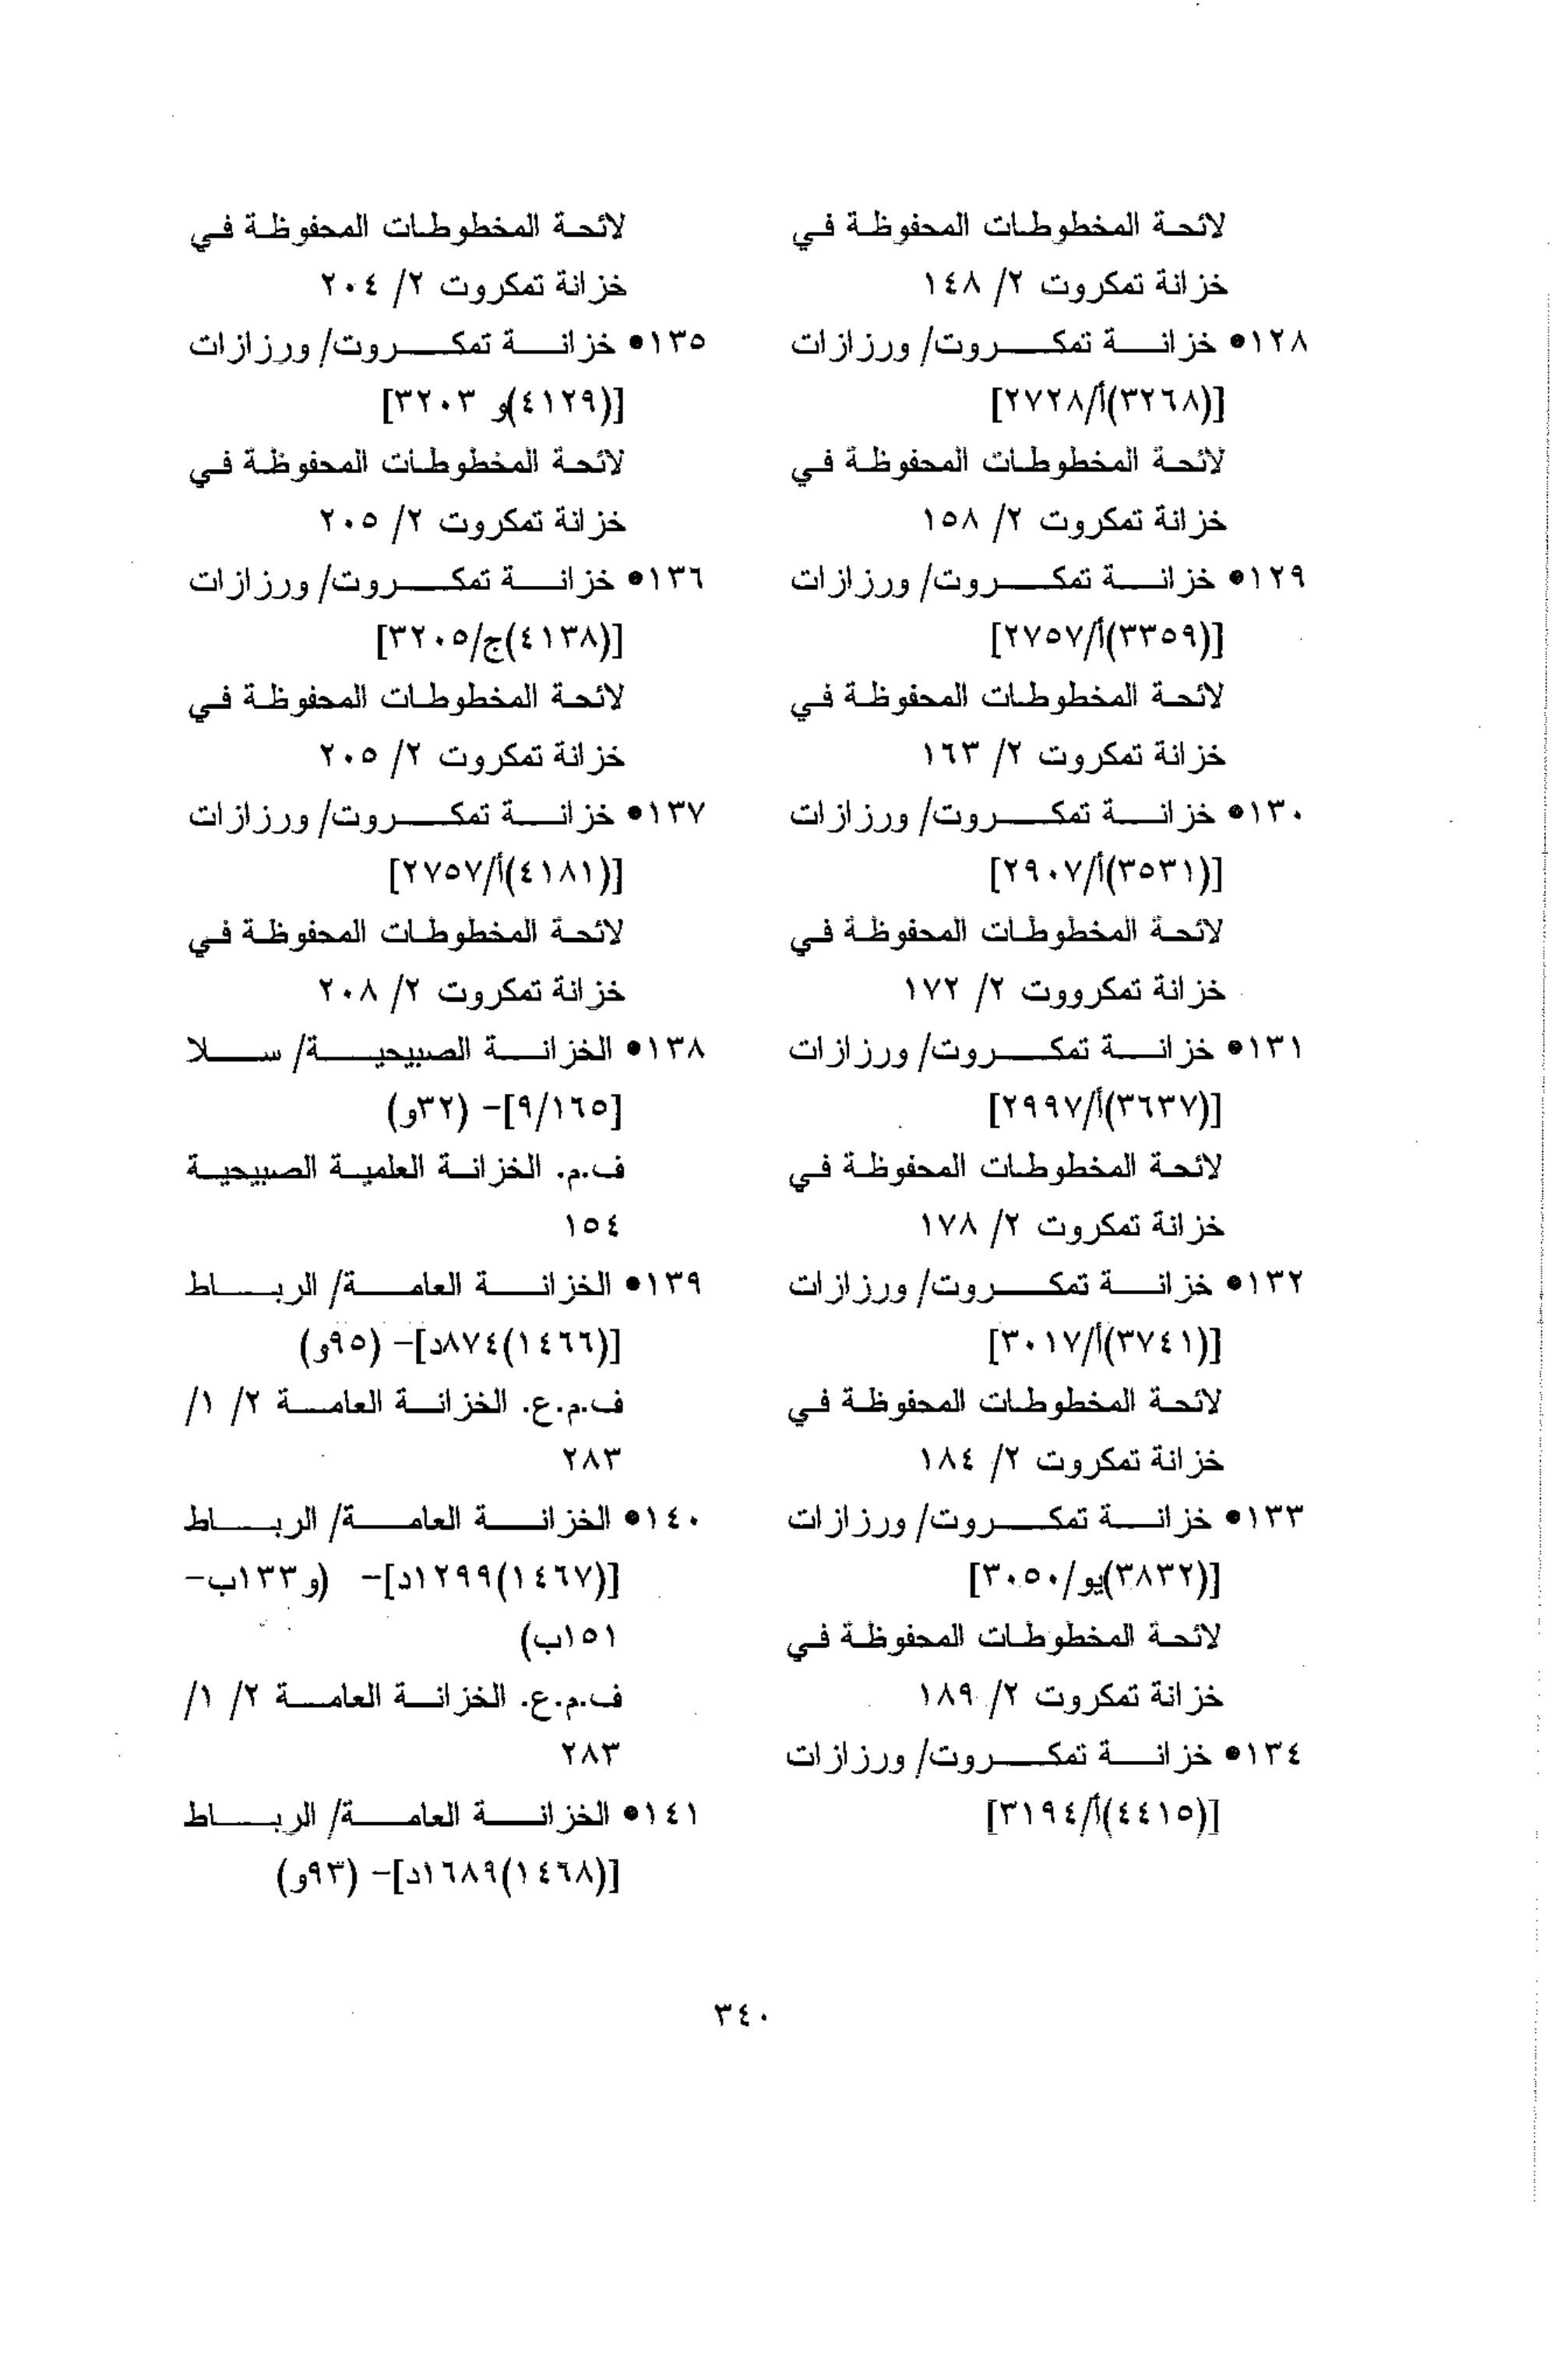 لائحة المخطوطات المحفوظة في
خزانة تمكروت ٢/ ١٤٨
١٢٨• خزانة تمكروت/ ورزازات
[(٣٢٦٨)أ/٢٧٢٨]
لائحة المخطوطات المحفوظة في
خزانة تمكروت ٢/ ١٥٨
١٢٩• خزانة تمكروت/ ورزازات
[(٣٣٥٩)أ/٢٧٥٧]
لائحة المخطوطات المحفوظة في
خزانة تمكروت ٢/ ١٦٣
١٣٠• خزانة تمكروت/ ورزازات
[(٣٥٣١)أ/٢٩٠٧]
لائحة المخطوطات المحفوظة في
خزانة تمكرووت ٢/ ١٧٢
١٣١• خزانة تمكروت/ ورزازات
[(٣٦٣٧)أ/٢٩٩٧]
لائحة المخطوطات المحفوظة في
خزانة تمكروت ٢/ ١٧٨
١٣٢• خزانة تمكروت/ ورزازات
[(٣٧٤١)أ/٣٠١٧]
لائحة المخطوطات المحفوظة في
خزانة تمكروت ٢/ ١٨٤
١٣٣• خزانة تمكروت/ ورزازات
[(٣٨٣٢)يو/٣٠٥٠]
لائحة المخطوطات المحفوظة في
خزانة تمكروت ٢/ ١٨٩
١٣٤• خزانة تمكروت/ ورزازات
[(٤٤١٥)أ/٣١٩٤]
لائحة المخطوطات المحفوظة في
خزانة تمكروت ٢/ ٢٠٤
١٣٥• خزانة تمكروت/ ورزازات
[(٤١٢٩)و ٣٢٠٣]
لائحة المخطوطات المحفوظة في
خزانة تمكروت ٢/ ٢٠٥
١٣٦• خزانة تمكروت/ ورزازات
[(٤١٣٨)ج/٣٢٠٥]
لائحة المخطوطات المحفوظة في
خزانة تمكروت ٢/ ٢٠٥
١٣٧• خزانة تمكروت/ ورزازات
[(٤١٨١)أ/٢٧٥٧]
لائحة المخطوطات المحفوظة في
خزانة تمكروت ٢/ ٢٠٨
١٣٨• الخزانة الصبيحية/ سلا
[٩/١٦٥]- (٣٢و)
ف.م. الخزانة العلمية الصبيحية
١٥٤
١٣٩• الخزانة العامة/ الرباط
[(١٤٦٦)٨٧٤د]- (٩٥و)
ف.م.ع. الخزانة العامة ٢/ ١/
٢٨٣
١٤٠• الخزانة العامة/ الرباط
[(١٤٦٧)١٢٩٩د]- (و١٣٣ب-
١٥١ب)
ف.م.ع. الخزانة العامة ٢/ ١/
٢٨٣
١٤١• الخزانة العامة/ الرباط
[(١٤٦٨)١٦٨٩د]- (٩٣و)
٣٤٠